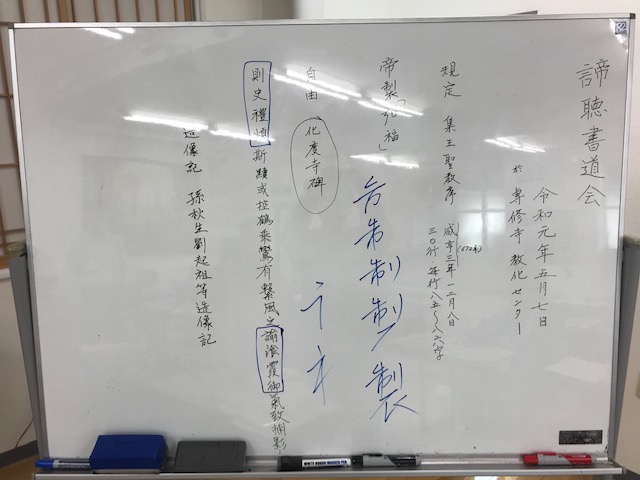 諦聴書道会
令和元年五月七日
於 専修寺 教化センター
規定 集王聖教序 咸亨三年十二月八日
(672年)
三〇行 毎行八五〜八六字
帝製「弘福」
制制製
自由 化度寺碑
則史禮
斯蹤或控鶴乗鸞有繋風之諭飡霞御氣致捕影
造像記 孫秋生劉起祖等造像記
WHITE BOARD MARKER PEN